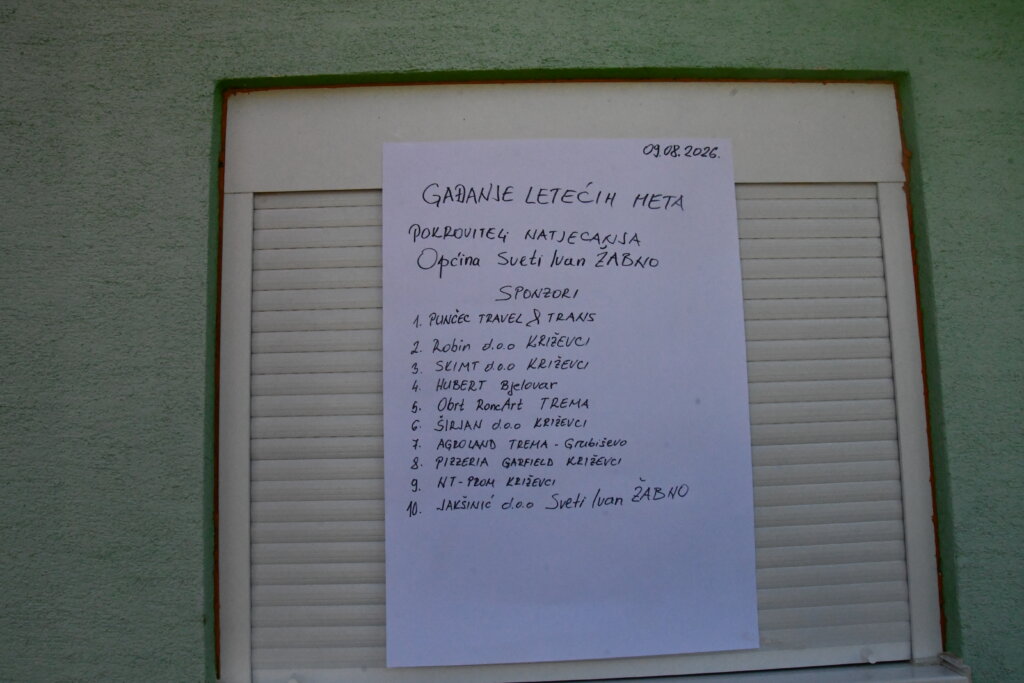 09.08.2026.
GAĐANJE LETEĆIH META
POKROVITELJ NATJECANJA
Općina Sveti Ivan ŽABNO
SPONZORI
1. PUNČEC TRAVEL & TRANS
2. Robin d.o.o KRIŽEVCI
3. SKIMT d.o.o KRIŽEVCI
4. HUBERT Bjelovar
5. Obrt RoncArt TREMA
6. ŠIRJAN d.o.o KRIŽEVCI
7. AGROLAND TREMA - Grubiševo
8. PIZZERIA GARFIELD KRIŽEVCI
9. NT-PROM KRIŽEVCI
10. JAKŠINIĆ d.o.o Sveti Ivan ŽABNO